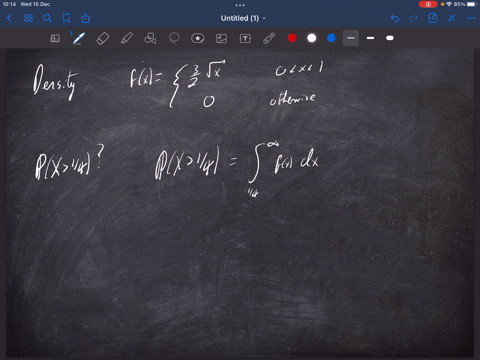 10:14 Wed 15 Dec
85%
Untitled (1)
Density f(x) = { 3/2 √x 0<x<1
0 otherwise
P(X>1/4)? P(X>1/4) = ∫_{1/4}^{∞} f(x) dx